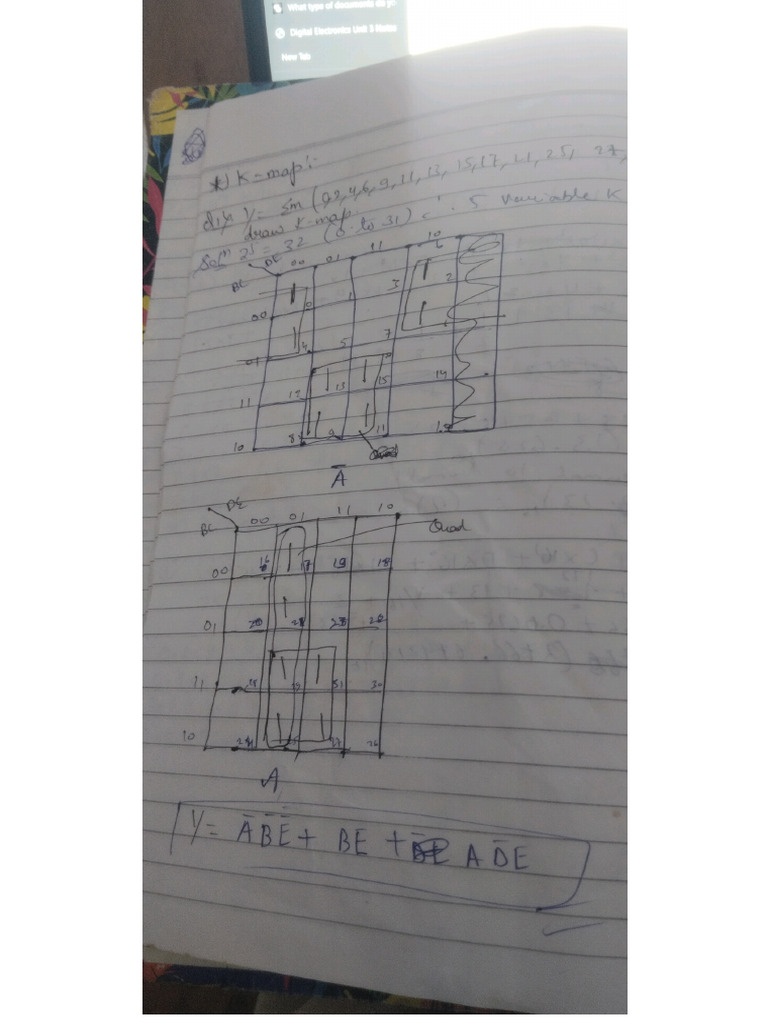 What type of documents do yo
Digital Electronics Unit 3 Notes
New Tab
*) K-map:
Y = Σm (0,2,4,6,9,11,13,15,17,21,25, 27,
draw K-map
Solⁿ 2⁵ = 32 (0 to 31) = 5 variable K
BC DE 00 01 11 10
00 1 0 1 3 1 6
01 1 4 5 7 1 2
11 12 1 13 1 15 14
10 8 1 9 1 11 10
Quad
Ā
BC DE 00 01 11 10
Quad
00 16 1 17 19 18
01 20 1 21 23 22
11 28 1 1 31 30
10 24 1 1 27 26
A
Y = A̅ B̅ E̅ + BE + A D̅ E